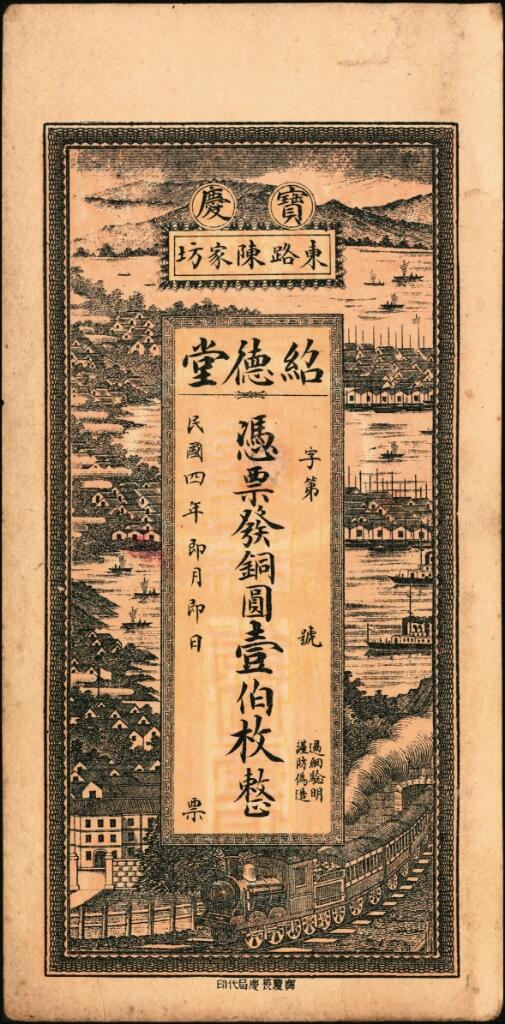 寶慶
東路陳家坊
紹德堂
字第 號
過細驗明
謹防偽造
憑票發銅圓壹伯枚整
民國四年即月即日 票
長慶局代印